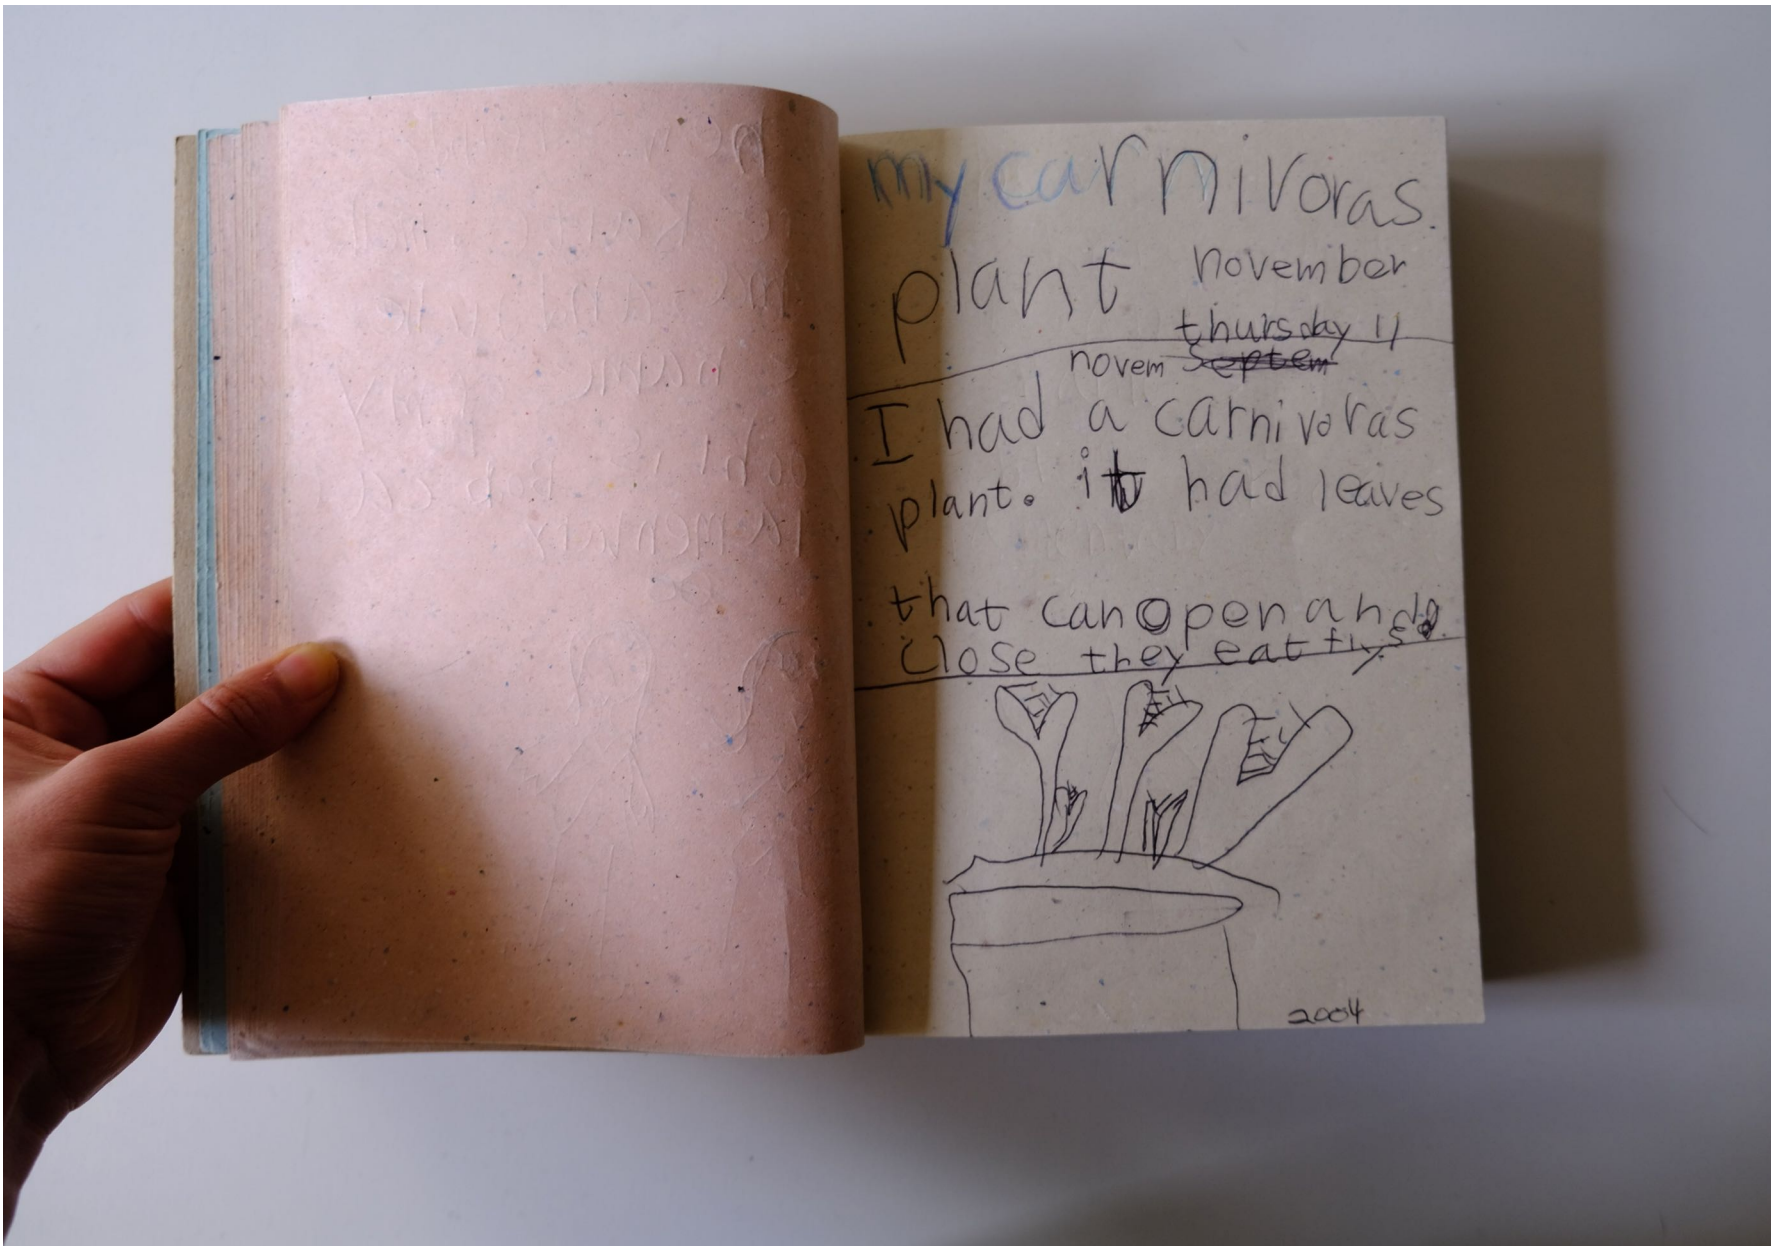 my carnivoras
plant november
thursday 11
novem Septem
I had a carnivoras
plant. it had leaves
that can open and
close they eat flys.
2004